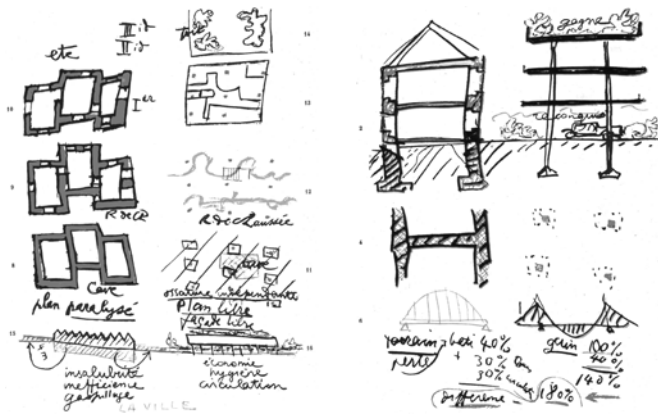 etc
III id
II id
toit
14
10
I er
13
9
R de Ch
12
R de Chaussée
8
Cave
plan paralysé
cave
11
ossature indépendante
Plan libre
façade libre
15
insalubrité
inefficience
gaspillage
16
économie
hygiène
circulation
LA VILLE
gagné
2
reconquis
4
6
terrain bâti 40%
perte
+ 30%
30%
Différence
gain 100%
40%
140%
180%